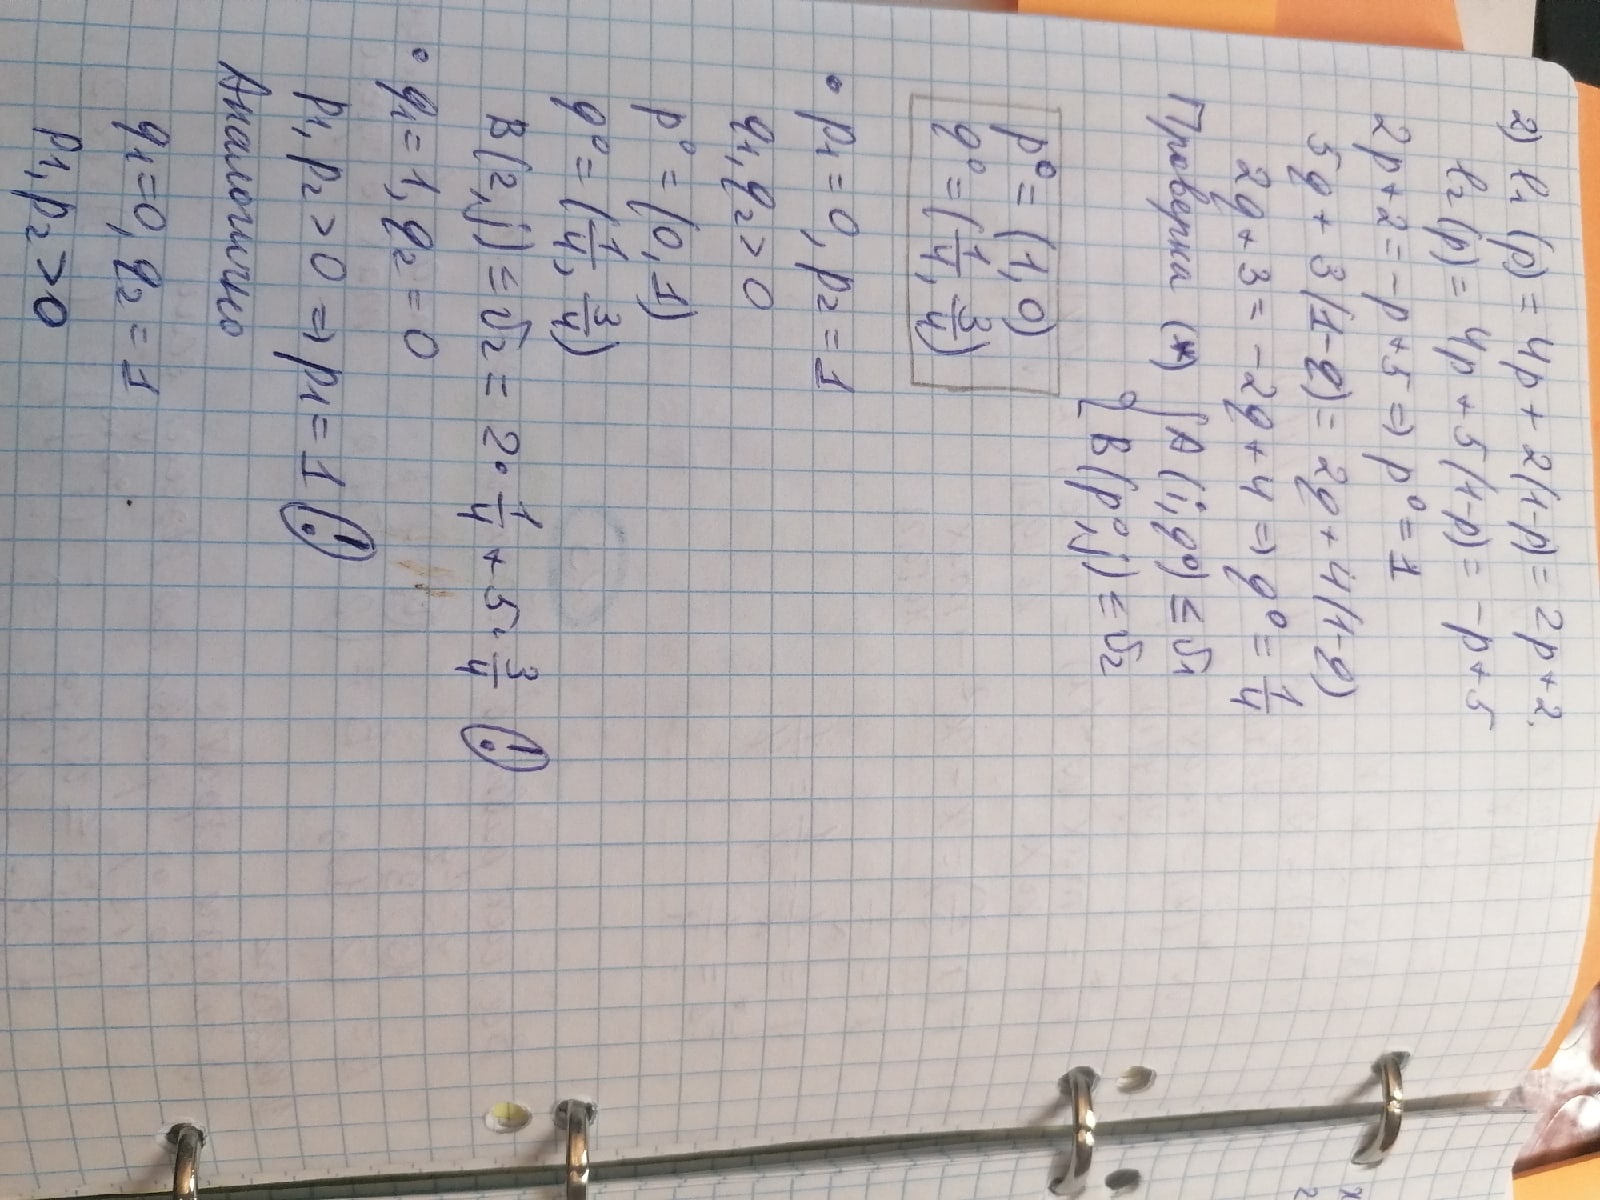 2) l₁(p) = 4p + 2(1-p) = 2p+2.
l₂(p) = 4p + 5(1-p) = -p+5
2p+2 = -p+5 => p⁰ = 1
5q + 3(1-q) = 2q + 4(1-q)
2q+3 = -2q+4 => q⁰ = 1/4
Проверка (*) { A(i,q⁰) ≤ v₁
B(p⁰,j) ≤ v₂
p⁰ = (1, 0)
q⁰ = (1/4, 3/4)
• p₁ = 0, p₂ = 1
q₁, q₂ > 0
p⁰ = (0, 1)
q⁰ = (1/4, 3/4)
B(2,j) ≤ v₂ = 2 · 1/4 + 5 · 3/4 (!)
• q₁ = 1, q₂ = 0
p₁, p₂ > 0 => p₁ = 1 (!)
Аналогично
q₁ = 0, q₂ = 1
p₁, p₂ > 0